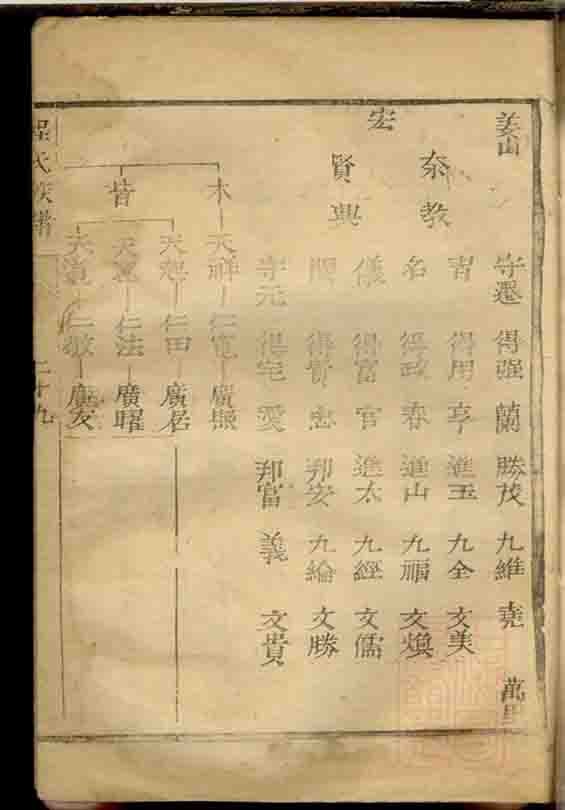 姜山 守還 得强 蘭 勝茂 九維 堯 萬
泰教 得用 亨 進玉 九全 文美
名 得政 春 進山 九福 文煥
宏 儀 得富 官 進太 九經 文儒
賢興 得賢 忠 邦安 九綸 文勝
守元 得完 愛 邦富 義 文貴
木 天祥 仁寬 廣照
昔 仁田 廣居
仁法 廣曜
仁敬 廣友
程氏族譜 二十九